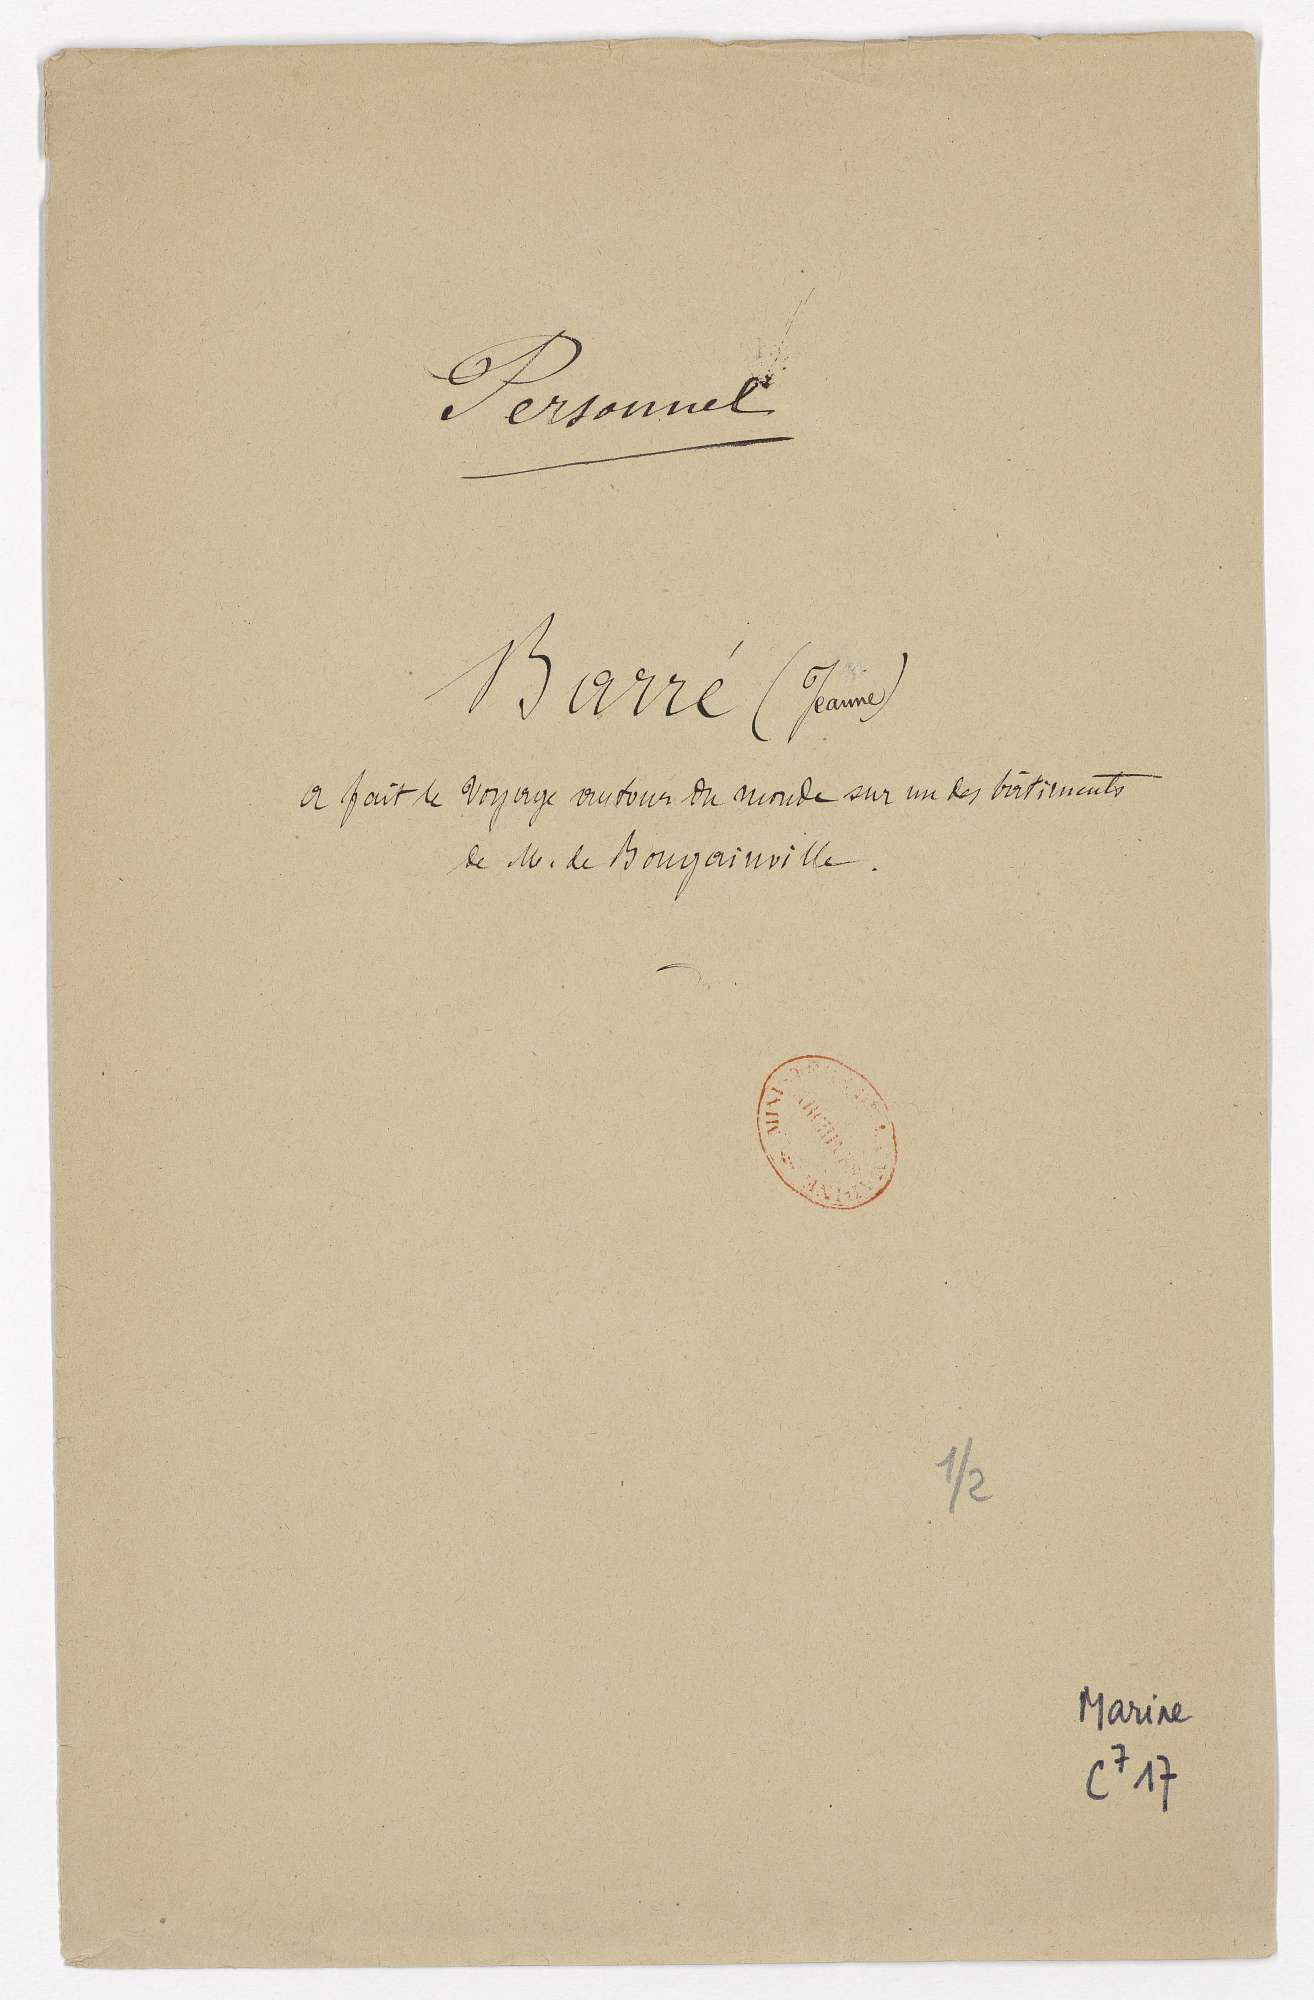 Personnel
Barré (Jeanne)
a fait le voyage autour du monde sur un des bâtiments
de M. de Bougainville.
MINISTÈRE DE LA MARINE
ARCHIVES
1/2
Marine
C⁷ 17